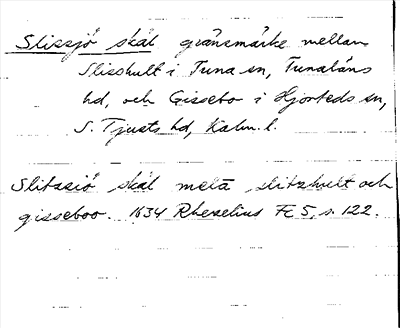 Slissjö skäl gränsmärke mellan
Slisshult i Tuna sn, Tunaläns
hd, och Gissebo i Hjorteds sn,
S. Tjusts hd, Kalm. l.
Slitssiö skäl mela slitzhult och
gisseboo. 1634 Rhezelius Fc 5, s. 122.